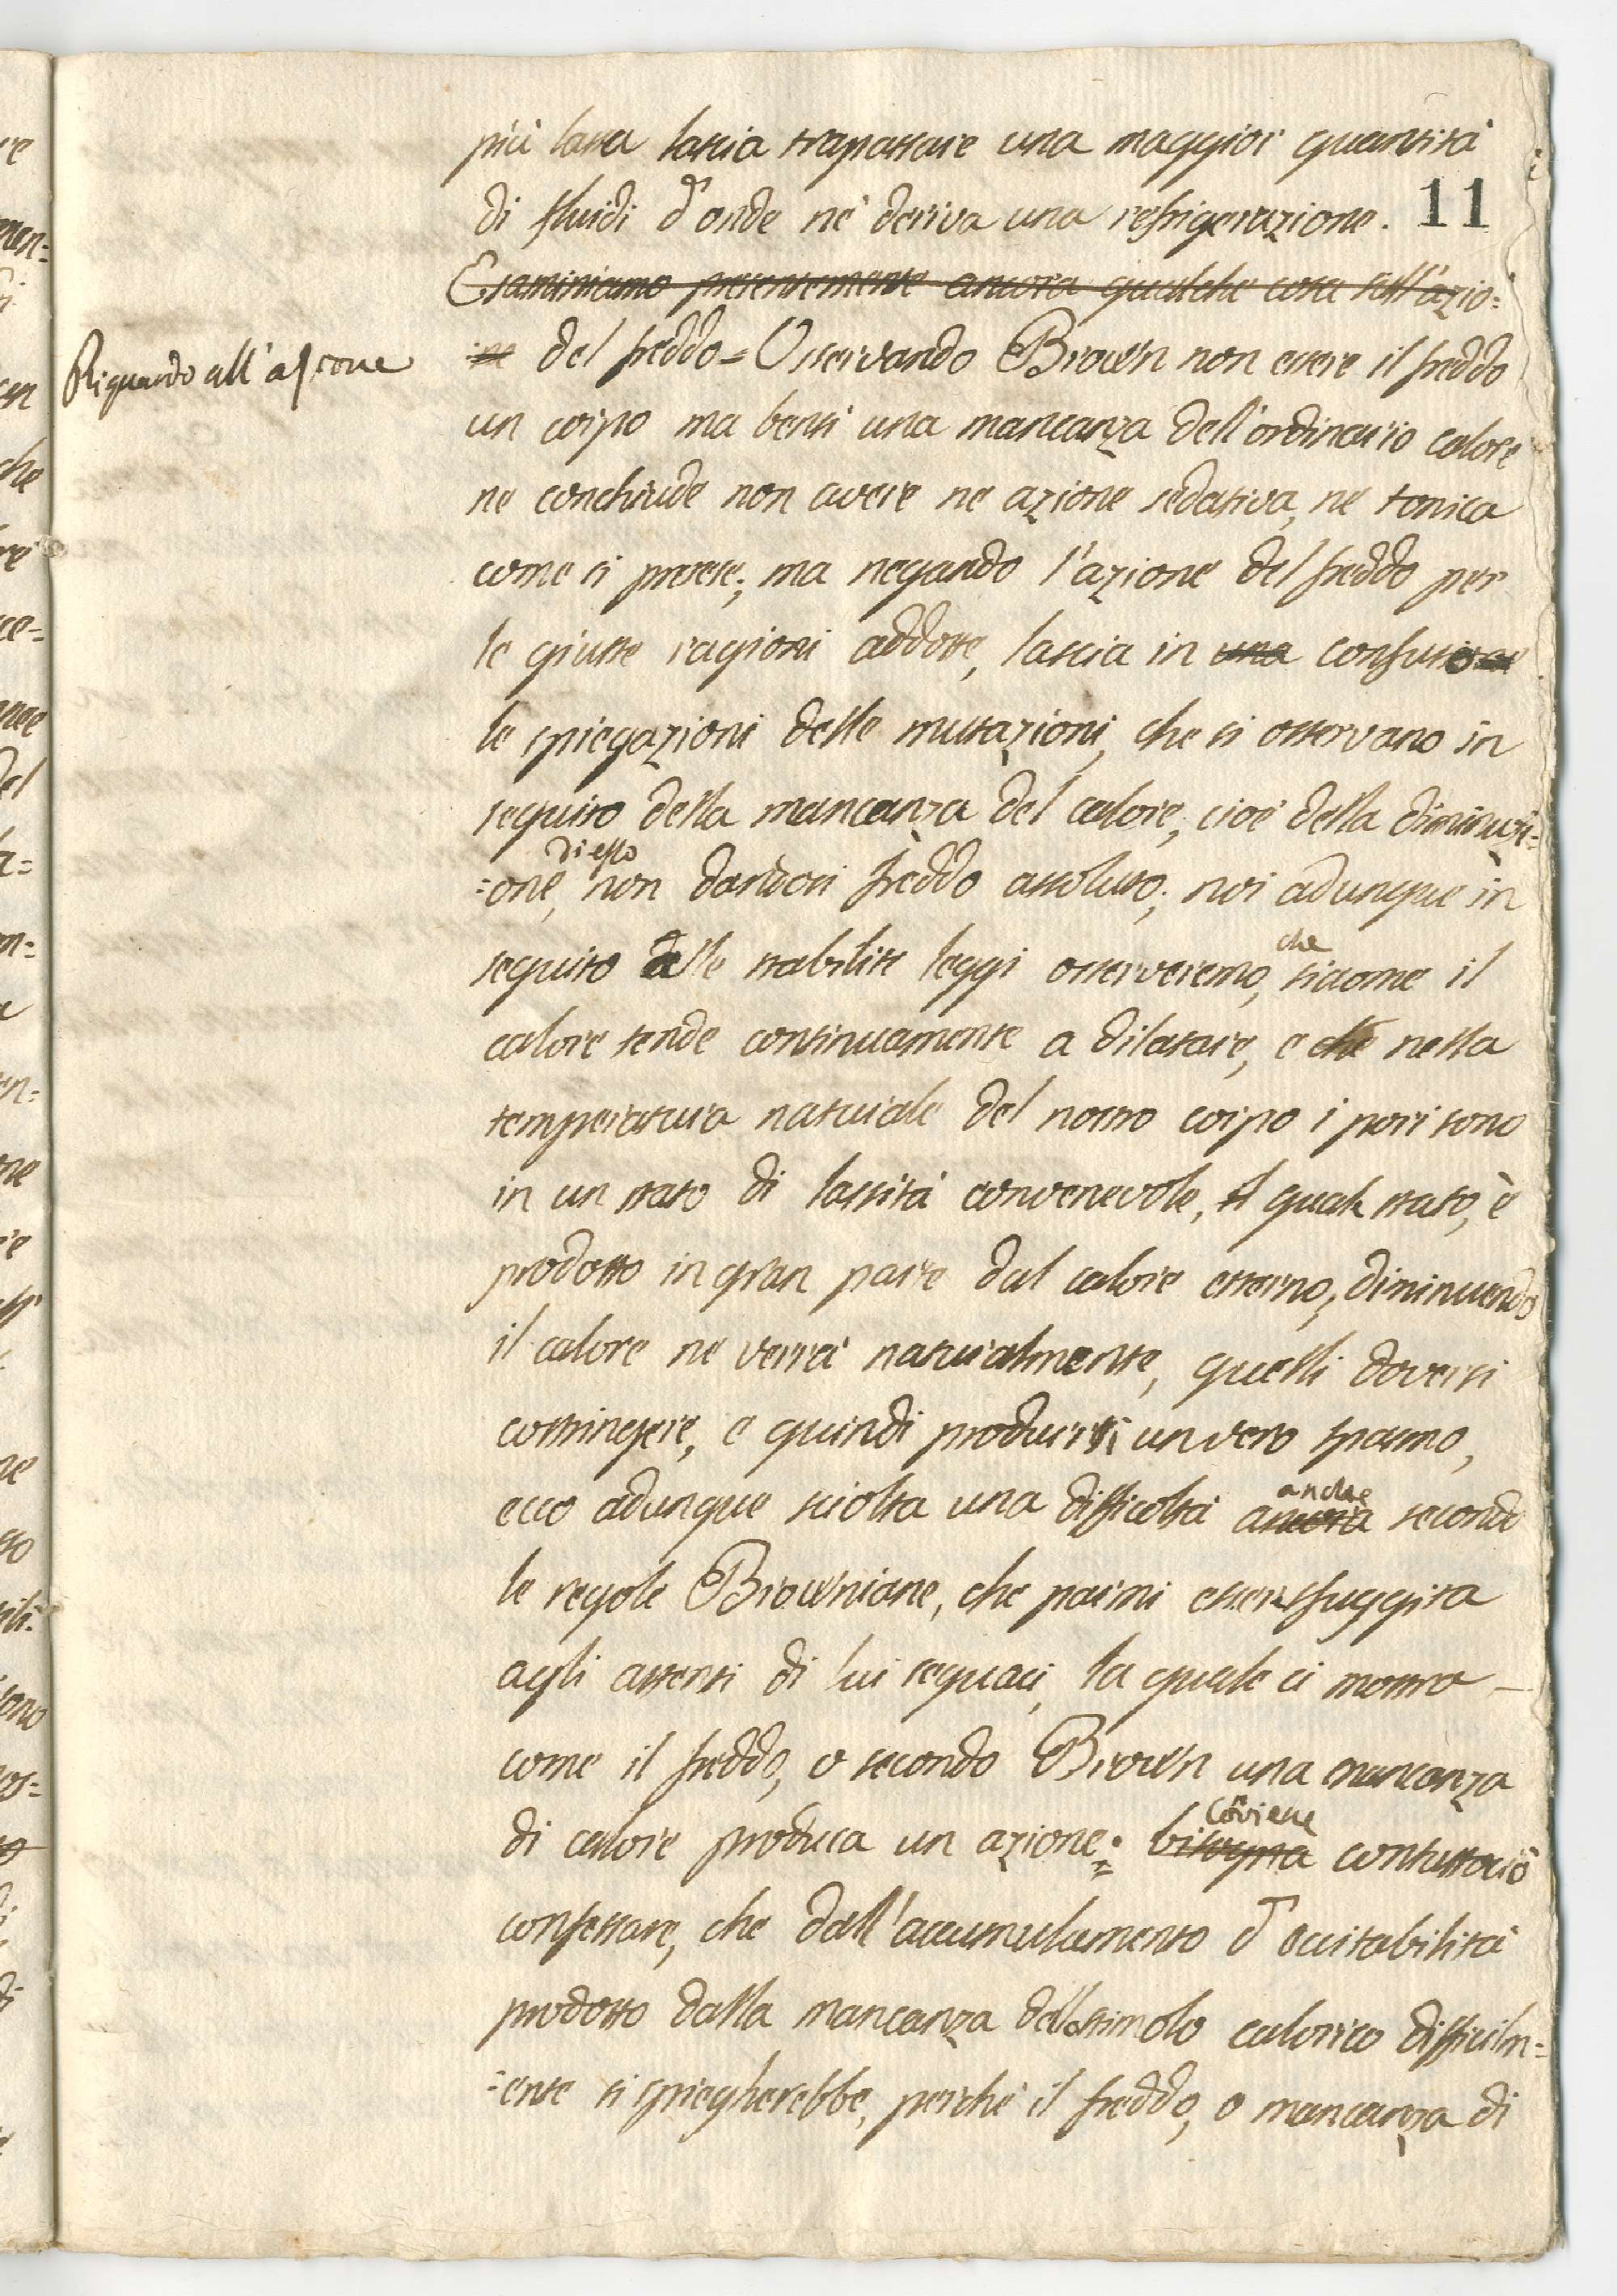 più lassa lascia trapassare una maggior quantità
di fluidi d'onde nè deriva una refrigerazione. 11
Esaminiamo presentemente ancora qualche cosa sull'azio:
:ne del freddo = Osservando Brown non essere il freddo
Riguardo all'azione
un corpo ma bensi una mancanza dell'ordinario calore
ne conchiude non avere ne azione sedativa, ne tonica
come si pretese; ma negando l'azione del freddo per
le giuste ragioni addotte, lascia in una confusione
le spiegazioni delle muttazioni, che si osservano in
seguito della mancanza del calore, cioè della diminuzi:
di esso
:one, non dandosi freddo assoluto; noi adunque in
seguito delle stabilite leggi osserveremo, che siccome il
calore tende continuamente a dilatare, e che nella
temperatura naturale del nostro corpo i pori sono
in un stato di lassità convenevole, il quale stato, è
prodotto in gran parte dal calore esterno, diminuendo
il calore ne verrà naturalmente, quelli doversi
costringere, e quindi prodursi un vero spasmo,
ecco adunque sciolta una difficoltà ancora anche secondo
le regole Browniane, che parmi essere sfuggita
agli attenti di lui seguaci, la quale ci mostra
come il freddo, o secondo Brown una mancanza
di calore produca un azione. bisogna Cõviene contuttociò
confessare, che dall'accumulamento d'eccitabilità
prodotto dalla mancanza dello stimolo calorico difficilm:
:ente si spiegherebbe, perchè il freddo, o mancanza di